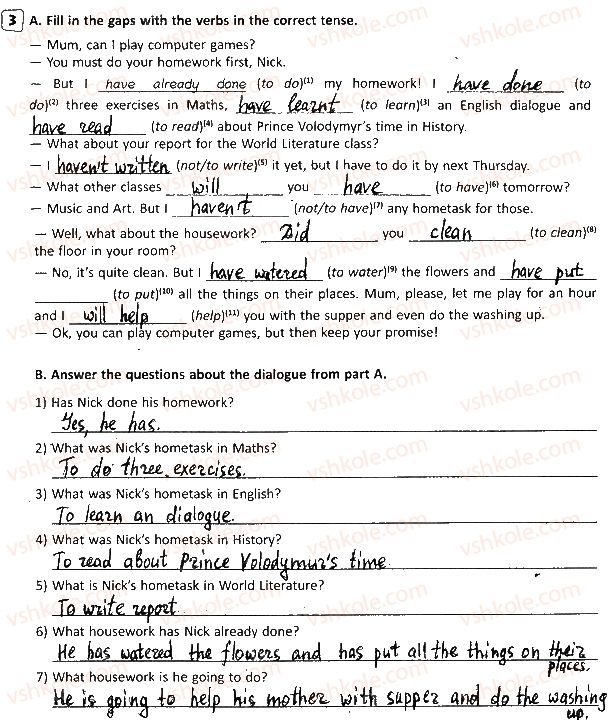 3 A. Fill in the gaps with the verbs in the correct tense.
— Mum, can I play computer games?
— You must do your homework first, Nick.
— But I have already done (to do)(1) my homework! I have done (to
do)(2) three exercises in Maths, have learnt (to learn)(3) an English dialogue and
have read (to read)(4) about Prince Volodymyr's time in History.
— What about your report for the World Literature class?
— I haven't written (not/to write)(5) it yet, but I have to do it by next Thursday.
— What other classes will you have (to have)(6) tomorrow?
— Music and Art. But I haven't (not/to have)(7) any hometask for those.
— Well, what about the housework? Did you clean (to clean)(8)
the floor in your room?
— No, it's quite clean. But I have watered (to water)(9) the flowers and have put
(to put)(10) all the things on their places. Mum, please, let me play for an hour
and I will help (help)(11) you with the supper and even do the washing up.
— Ok, you can play computer games, but then keep your promise!
B. Answer the questions about the dialogue from part A.
1) Has Nick done his homework?
Yes, he has.
2) What was Nick's hometask in Maths?
To do three exercises.
3) What was Nick's hometask in English?
To learn an dialogue.
4) What was Nick's hometask in History?
To read about Prince Volodymur's time
5) What is Nick's hometask in World Literature?
To write report
6) What housework has Nick already done?
He has watered the flowers and has put all the things on their
places.
7) What housework is he going to do?
He is going to help his mother with supper and do the washing
up.